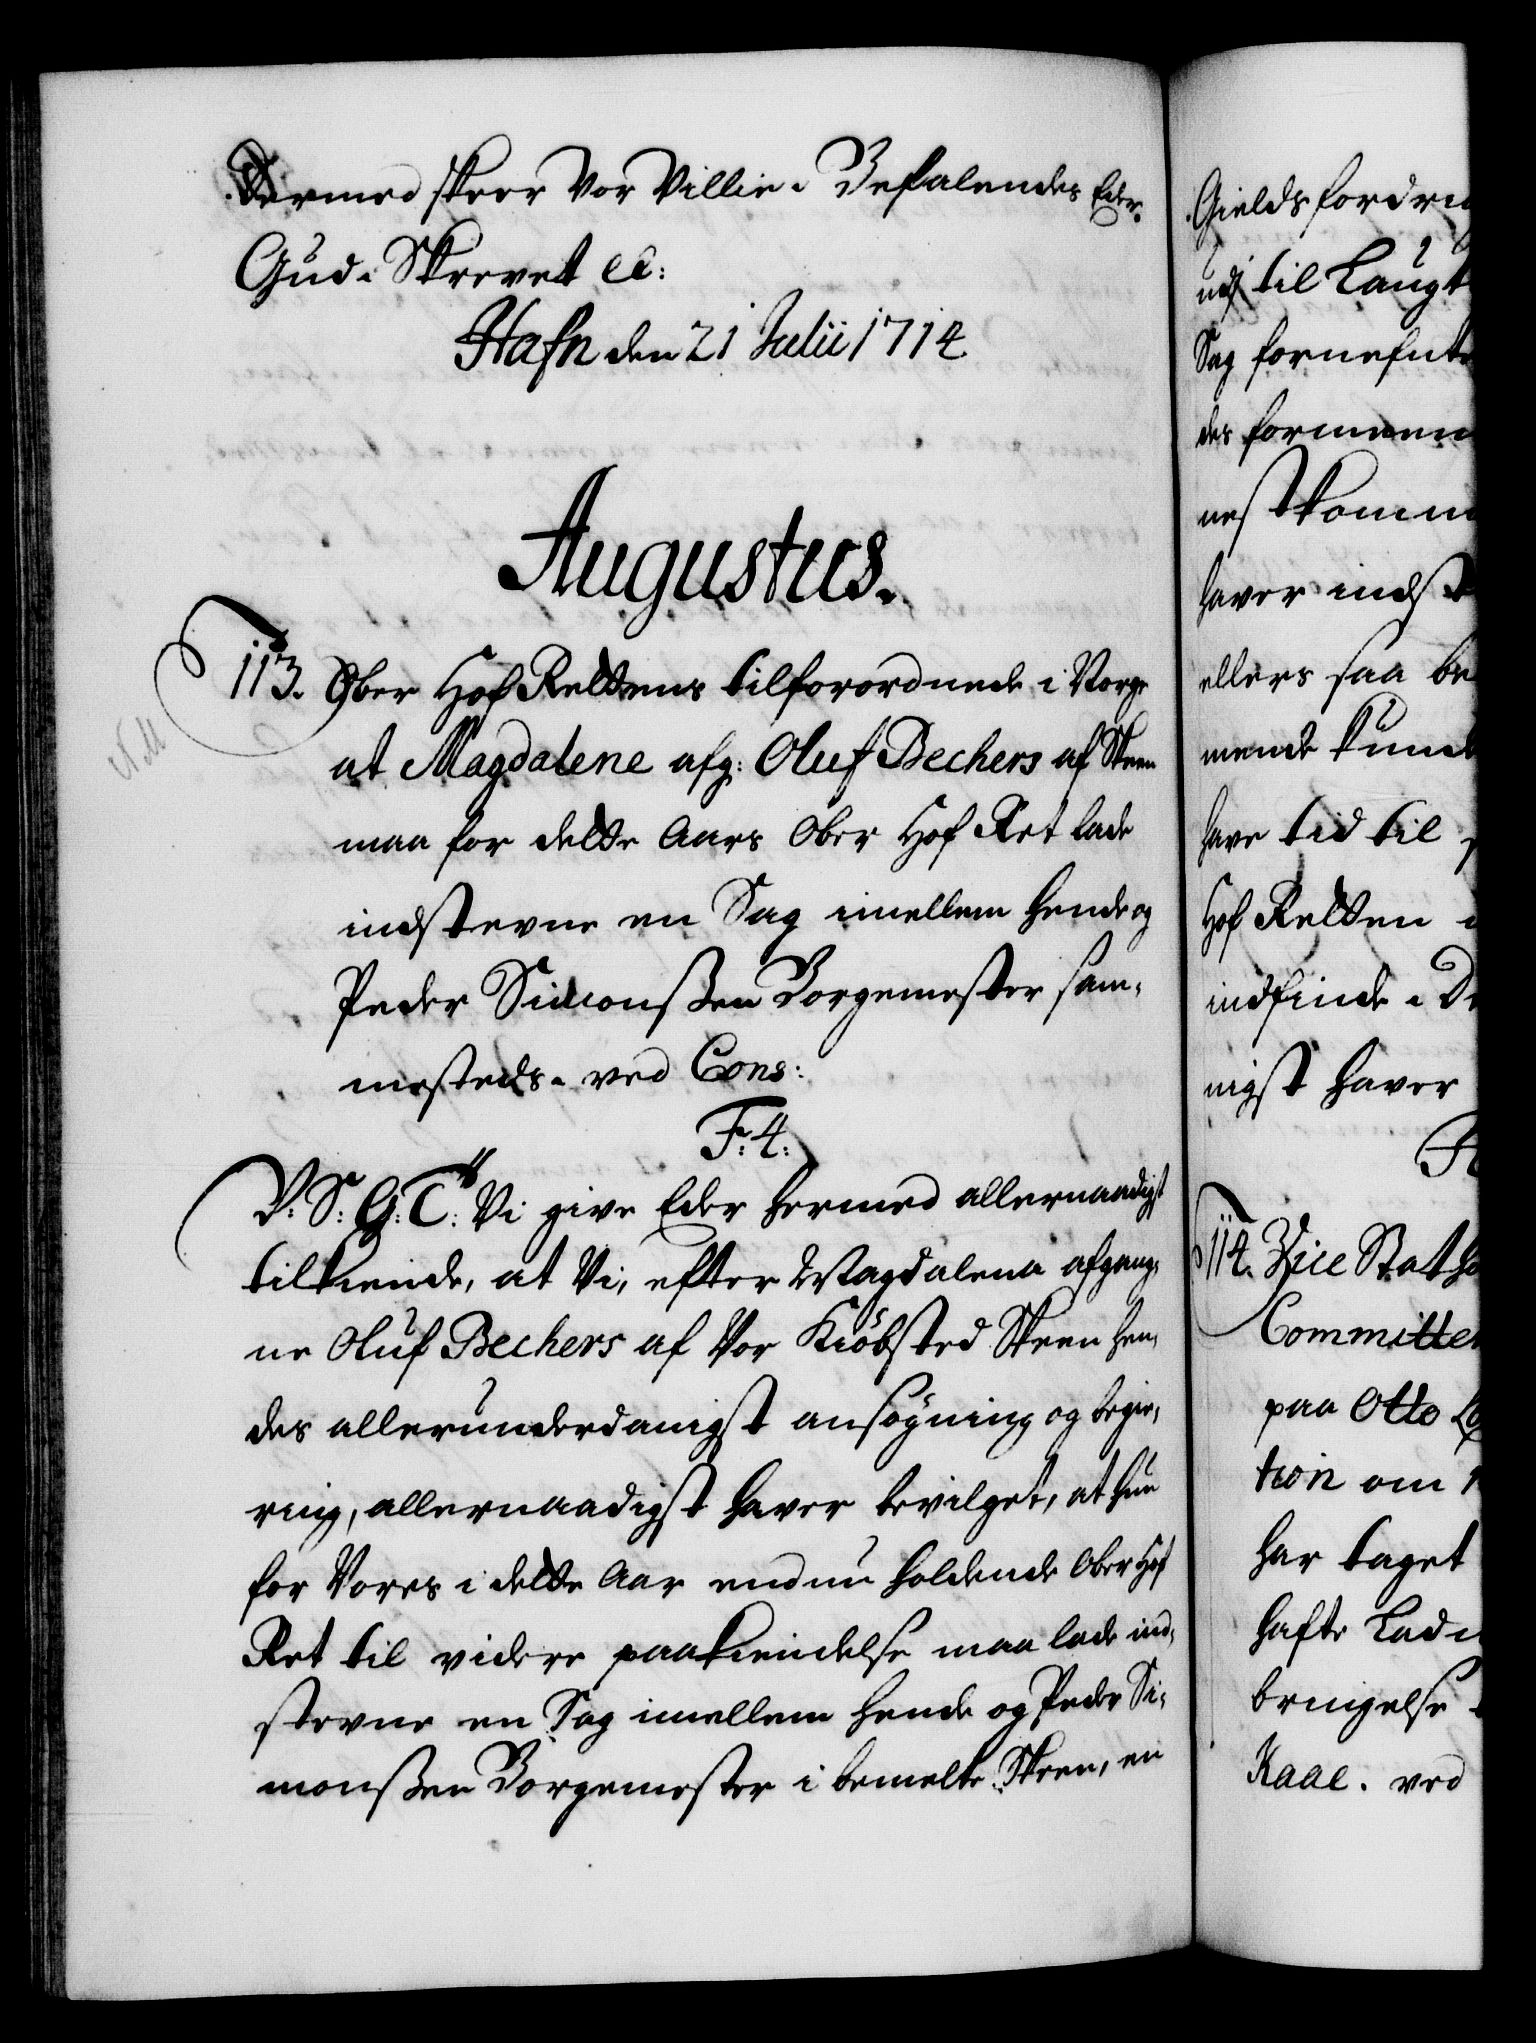 Dermed skeer Vor Villie. Befalendes Eder
Gud. Skrevet ec:
Hafn den 21 Julii 1714
Augustus.
113. Ober Hof Rettens tilforordnede i Norge
at Magdalene afg: Oluf Bechers af Skeen
maa for dette Aars Ober Hof Ret lade
indstevne en Sag imellem hende og
Peder Simonssen Borgemester sam-
mesteds. ved Cons:
F: 4:
V: S: G: T: Vi give Eder hermed allernaadigst
tilkiende, at Vi, efter Magdalena afgang-
ne Oluf Bechers af Vor Kiöbsted Skeen hen-
des allerunderdanigst ansögning og begie-
ring, allernaadigst haver bevilget, at hun
for Vores i dette Aar endnu holdende Ober Hof
Ret til videre paakiendelse maa lade ind-
stevne en Sag imellem hende og Peder Si-
monssen Borgemester i bemelte Skeen, en
Gields fordri
udj til Laugt
Sag fornefnte
des formeen
nest komm
haver indst
ellers saa be
mende kund
have tid til
Hof Retten
indfinde. De
nigst haver
114. Vice Statho
Committer
paa Otto
tion om
har taget
hafte Lad
bringelse
Kaae. ved